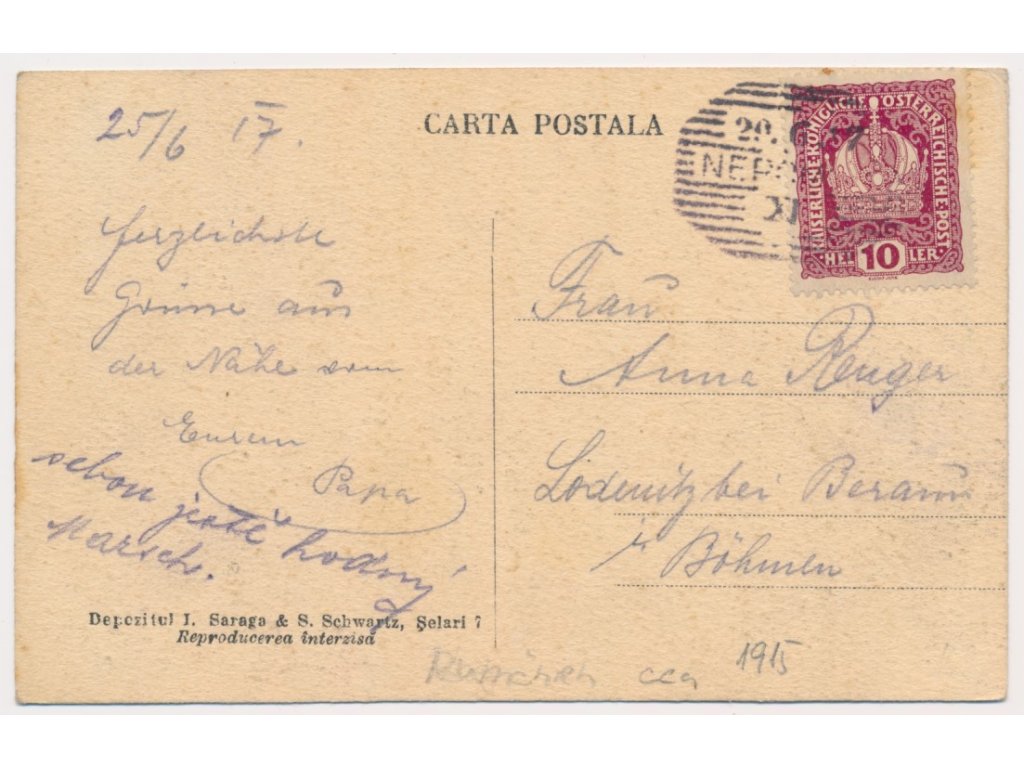 25/6 17.
CARTA POSTALA
29. 17
NEPO
XI
KAISERLICHE KÖNIGLICHE ÖSTERREICHISCHE POST
HELLER
10
Herzlichste
Grüsse aus
der Nähe vom
Eurem
Papa
schon ještě hodný
Marsch.
Frau
Anna Renger
Lodenitz bei Beraun
in Böhmen
Depozitul I. Saraga & S. Schwartz, Şelari 7
Reproducerea interzisă
cca 1915